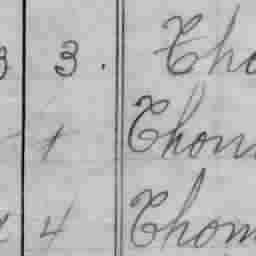 3 3. Tho
1 Thom
4 Thom